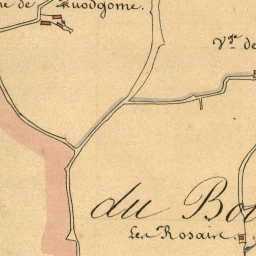 de Kuodgome
Vge de
du Bo
Le Rosaire